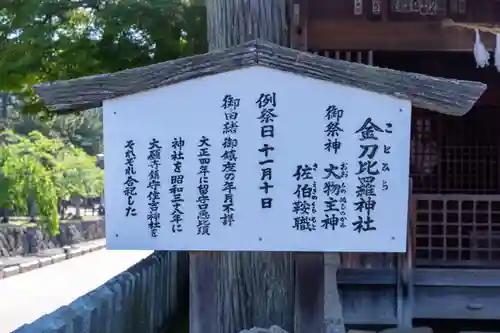 金刀比羅神社
ことひら
御祭神 大物主神
おお もの ぬしのかみ
佐伯鞍職
さ えきの くらもと
例祭日 十一月十日
御由緒 御鎮座の年月不詳
大正四年に留守恵比須
神社を昭和三 年に
大願寺鎮守住吉神社を
それぞれ合祀した